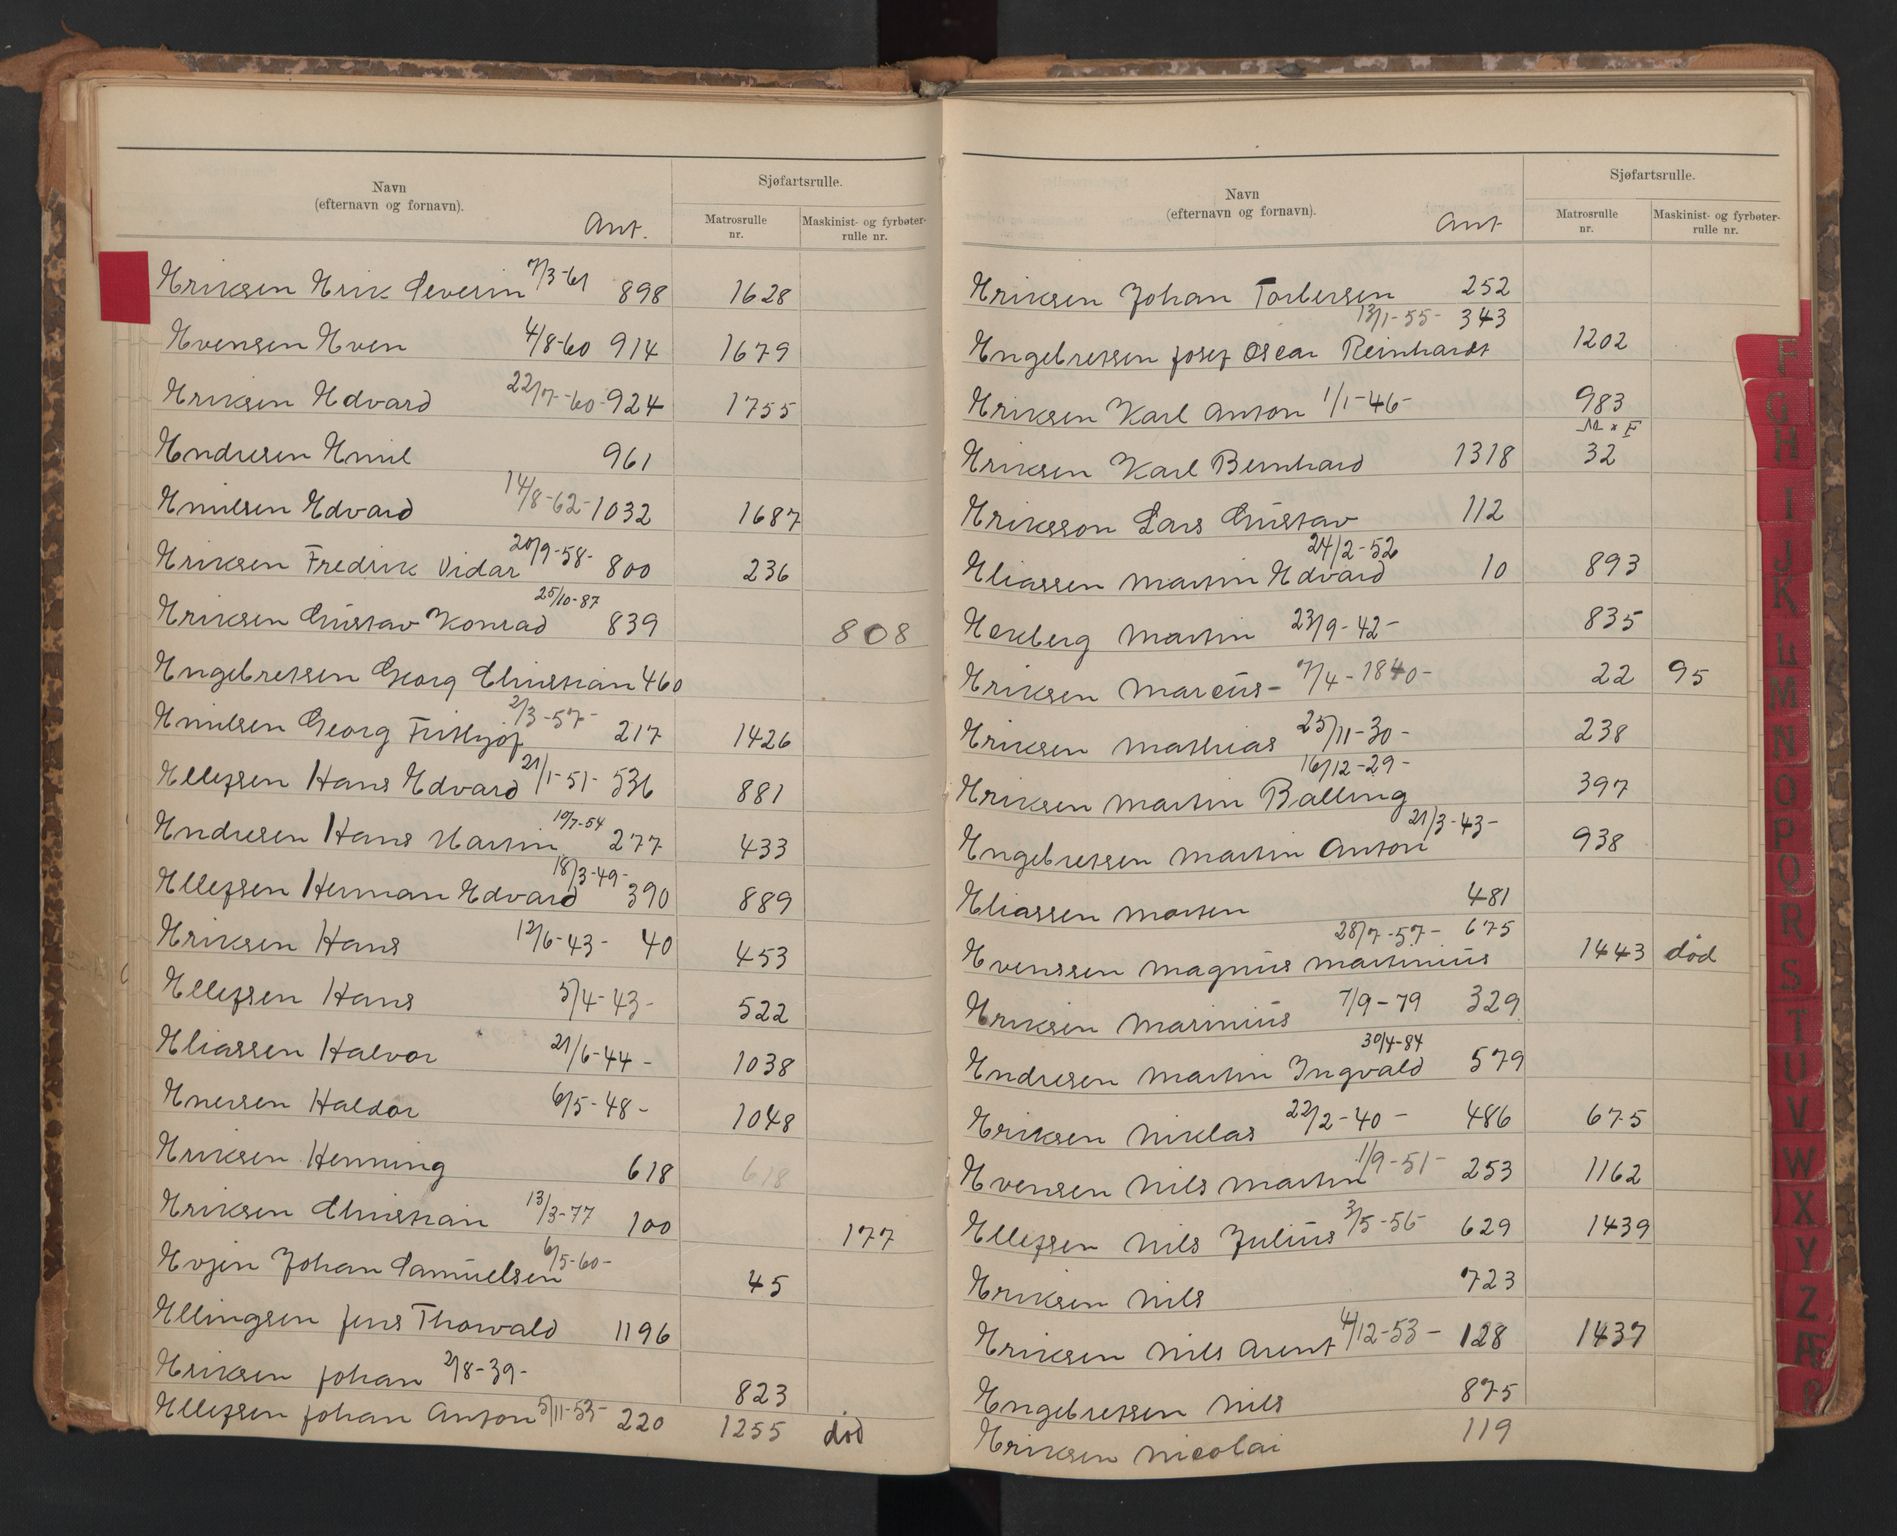 Navn
(efternavn og fornavn).
Ant.
Sjøfartsrulle.
Matrosrulle nr.
Maskinist- og fyrbøter-rulle nr.
Eriksen Erik Severin 7/3-61 898 1628
Evensen Even 4/8-60 914 1679
Eriksen Edvard 22/7-60- 924 1755
Endresen Emil 961
Emilsen Edvard 14/8-62- 1032 1687
Eriksen Fredrik Vidar 20/9-58- 800 236
Eriksen Gustav Konrad 25/10-87 839 808
Engebretsen Georg Christian 460
Emilsen Georg Frithjof 2/3-57- 217 1426
Ellefsen Hans Edvard 21/1-51- 536 881
Endresen Hans Martin 10/7-54 277 433
Ellefsen Herman Edvard 18/3-49- 390 889
Eriksen Hans 12/6-43- 40 453
Ellefsen Hans 5/4-43- 522
Eliassen Halvor 21/6-44- 1038
Enersen Haldor 6/5-48- 1048
Eriksen Henning 618 618
Eriksen Christian 13/3-77 100 177
Evjen Johan Samuelsen 6/5-60- 45
Ellingsen Jens Thorvald 1196
Eriksen Johan 2/8-39- 823
Ellefsen Johan Anton 5/11-53- 220 1255 død
Navn
(efternavn og fornavn).
Ant
Sjøfartsrulle.
Matrosrulle nr.
Maskinist- og fyrbøter-rulle nr.
Eriksen Johan Torbersen 252
Engebretsen Josef Oscar Reinhardt 13/1-55- 343 1202
Eriksen Karl Anton 1/1-46- 983
M x F
Eriksen Karl Bernhard 1318 32
Eriksson Lars Gustav 112
Eliassen Martin Edvard 24/2-52 10 893
Ekberg Martin 23/9-42- 835
Eriksen Marcus- 7/4-1840- 22 95
Eriksen Mathias 25/11-30- 238
Eriksen Martin Balling 16/12-29- 397
Engebretsen Martin Anton 21/3-43- 938
Eliassen Morten 481
Evenssen Magnus Martinius 28/7-57- 675 1443 død
Eriksen Marinius 7/9-79 329
Endresen Martin Ingvald 30/4-84 579
Eriksen Niklas 22/2-40- 486 675
Evensen Nils Martin 1/9-51- 253 1162
Ellefsen Nils Julius 3/5-56- 629 1439
Eriksen Nils 723
Eriksen Nils Arent 4/12-53- 128 1437
Engebretsen Nils 875
Eriksen Nicolai 119
F
G
H
I
J
K
L
M
N
O
P
Q
R
S
T
U
V
W
X
Y
Z
Æ
Ø